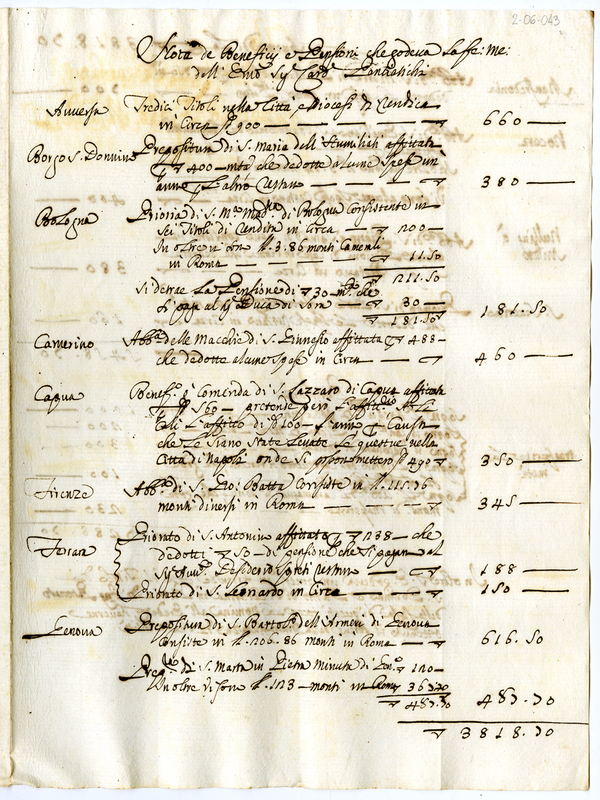 2-06-043
Nota de Beneficij e Pensioni che godeva la fe: me:
dell' Em.o Sig.r Card.
Auversa Tredici Titoli nella Città e Diocesi di Rendita
in Circa 900 — 660
Borgo S. Donnino Prepositura di S. Maria dell' Humiliati affittata
400 — m.ta che dedotte alcune spese un
anno p l'altro — 380
Bologna Prioria di S. M.a Mad.na di Bologna Consistente in
Sei Titoli di Rendita in Circa — 200 —
In oltre vi sono l. 3.86 monti Camerali
in Roma — 11.50
211.50
Si detrae la Pensione di 30 m.ta che
si paga al Sig. Duca di Sora — 30 —
181.50 181.50
Camerino Abb.a delle Macchie di S. Ginnesio affittata 488 —
che dedotte alcune spese in Circa — 460
Capua Benef.o o Comenda di S. Lazzaro di Capua affittata
560 — pretense però
l'affitto di 100 — l'anno Causa
che le siano state levate le questue nella
Città di Napoli onde si 490 350
Firenze Abb.a di S. Gio: Batta Consiste in l. 115.76
monti diversi in Roma — 345
Ferrara Priorato di S. Antonino affittato 238 — che
dedotti 50 — di pensione che si pagan al
Sig. Desiderio — 188
Priorato di S. Leonardo in Circa — 150
Genova Prepositura di S. Bartol.o dell' Armeni di Genova
Consiste in l. 206.86 monti in Roma — 616.50
Prep.ra di S. Marta in Pietra Minuta di Gen.a 120 —
In oltre vi sono l. 123 — monti in Roma 367.70
487.70 487.70
3818.70